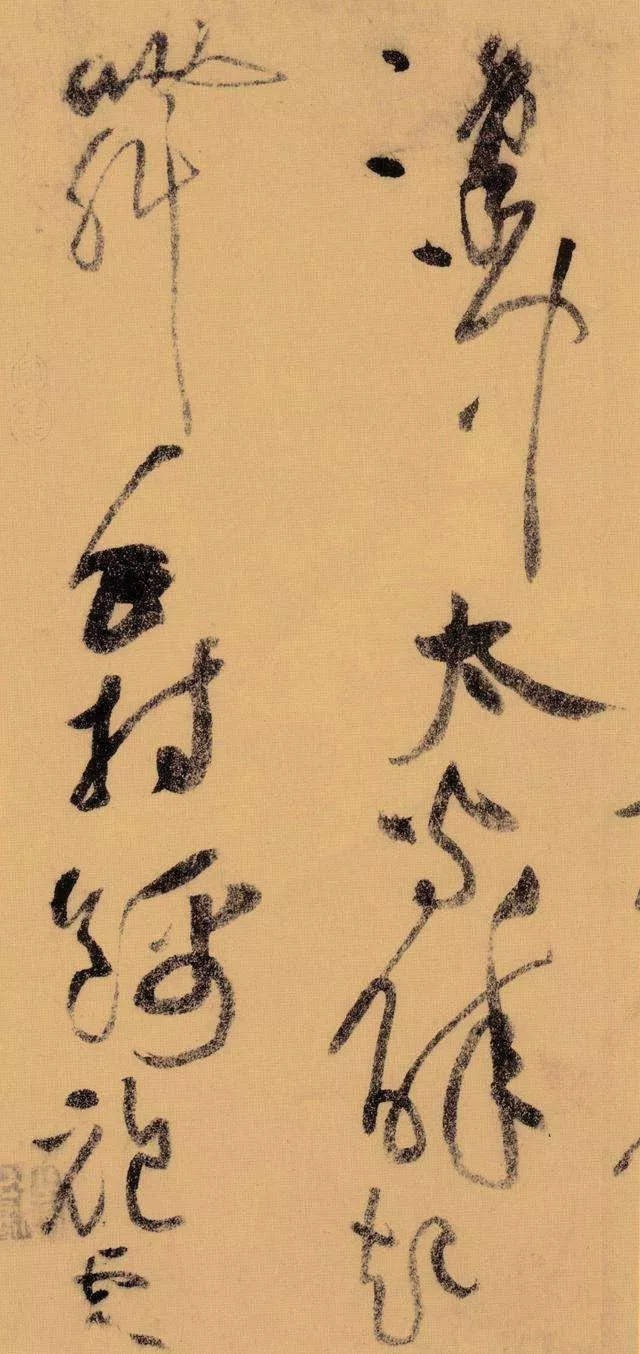 漢中太守醉起
舞手持錦袍覆